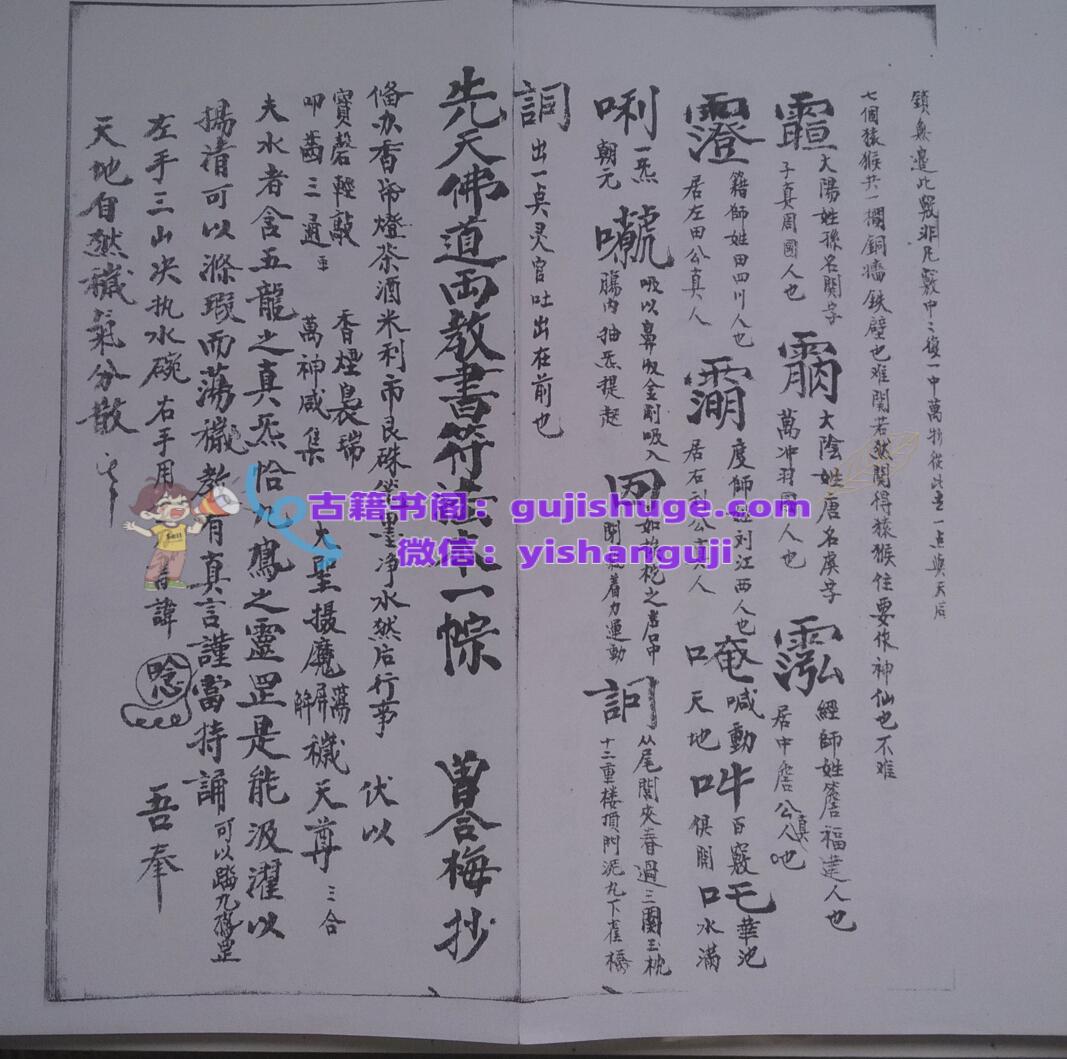 鎖無邊此竅非凡竅中之復一中萬物從此
七個猿猴共一欄銅墻鉄壁也难関若然関得猿猴住要做神仙也不难
大陽姓孫名関字
子真周國人也
大陰姓唐名虞字
萬冲羽國人也
泓 經師姓詹福建人也
居中詹公真人
籍師姓田四川人也
居左田公真人
度師姓刘江西人也
居右刘公真人
唵喊動
口天地
吽百竅
吽俱開
吒華池
口水滿
唎一炁
朝元
吸以鼻吸金剛吸入
腸内抽炁提起
如枕之居中
閉着力運動
訶从尾閭夾脊過三關玉枕
十二重楼頂門泥九下雀橋
詞出一点灵官吐出在前也
先天佛道両教書符法本一悰 曾合梅抄
偹办香帋燈茶酒米利市艮硃筆墨净水然后行事 伏以
寳磬輕敲 香煙裊瑞
叩齒三通 萬神咸集 大聖摄魔 蕩穢天尊 三合
夫水者含五龍之真炁恰九鳳之靈罡是能汲濯以
揚清可以滌瑕而荡穢教有真言謹當持誦 可以踏九鳳罡
左手三山决执水碗右手用 諱 唸 吾奉
天地自然穢氣分散
古籍书阁：gujishuge.com
微信：yishanguji